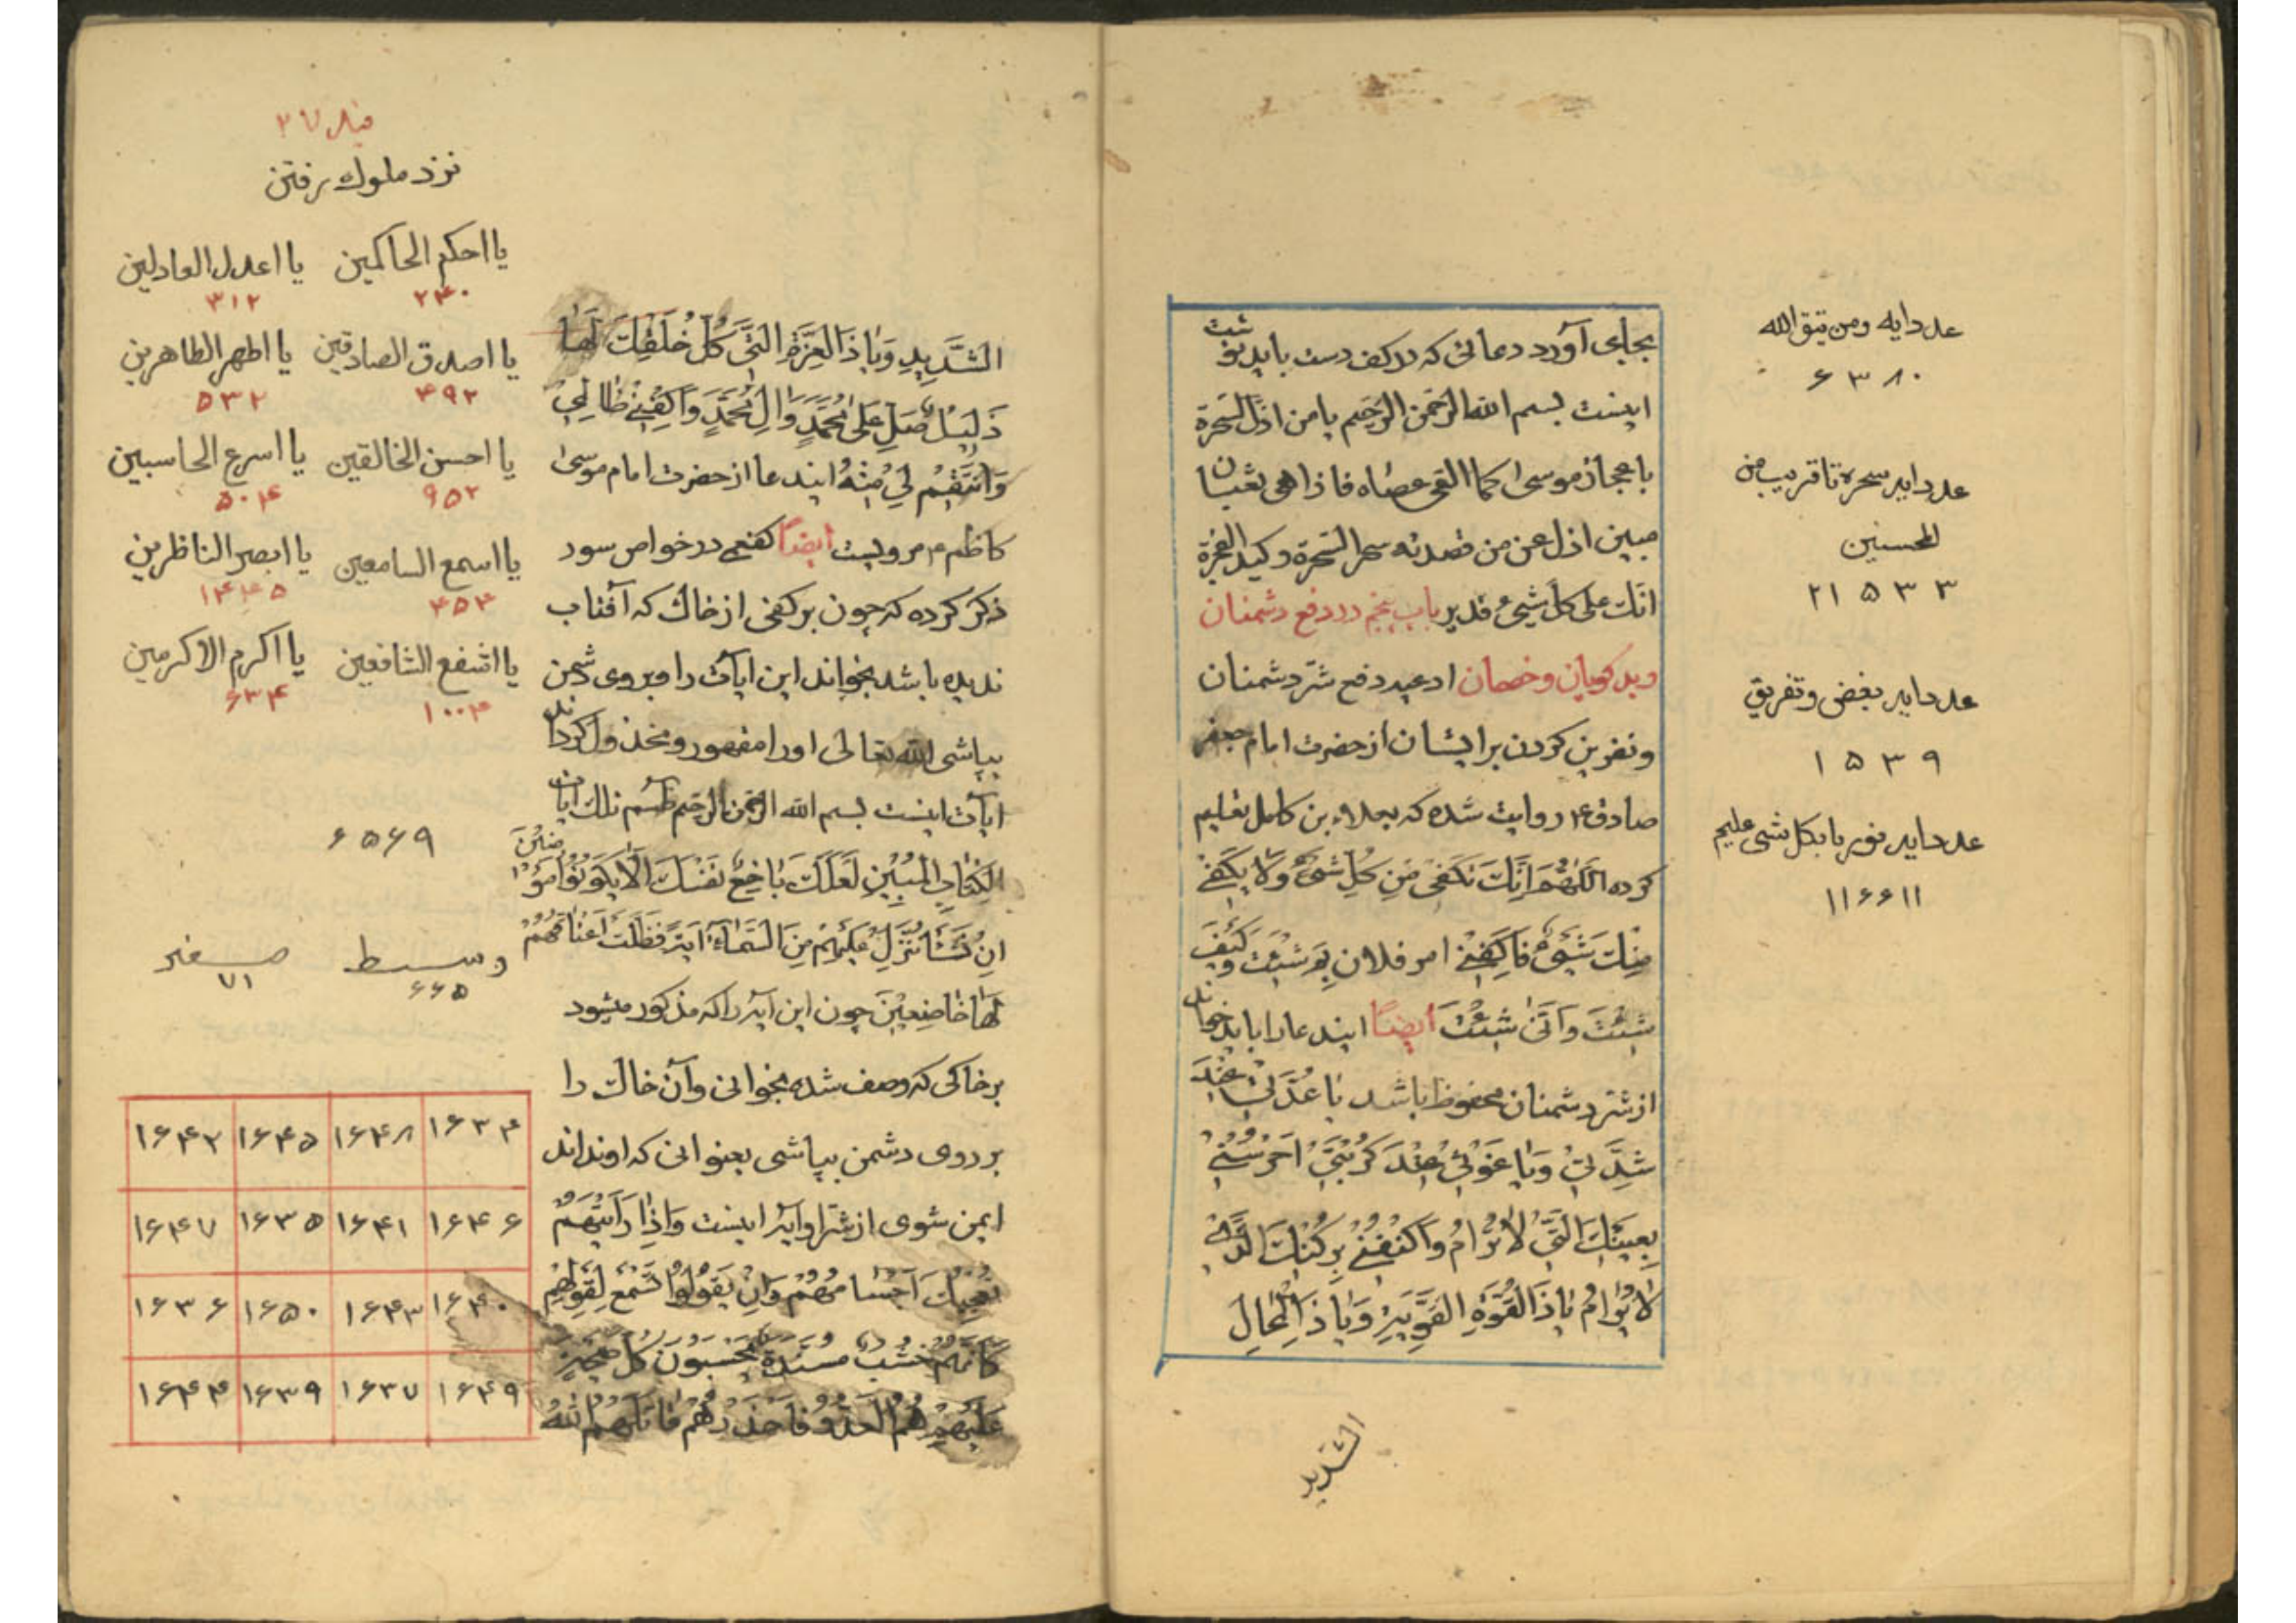 بجای آورد دعائی که در کف دست باید نوشت
اینست بسم الله الرحمن الرحیم یا من اذل السحرة
باعجاز موسی کما القی عصاه فاذا هی ثعبان
مبین اذل عن من قصدته سحر السحرة و کید
انک علی کل شیء قدیر باب پنجم در دفع دشمنان
و بدکویان و خصمان ادعیه دفع شر دشمنان
و نفرین کردن بر ایشان از حضرت امام جعفر
صادق ع روایت شده که بعلاء بن کامل تعلیم
کرده اللهم انک تکفی من کل شیء ولا یکفی
منک شیء فاکفنی امر فلان بم شئت و کیف
شئت و انی شئت ایضا ایندعا را باید خواند
از شر دشمنان محفوظ باشد یا عدتی عند
شدتی ویا غوثی عند کربتی احرسنی
بعینک التی لا تنام واکنفنی برکنک الذی
لا یرام یا ذا القوة القویة ویا ذا المحال
الشدید
عدد ایه ومن یتق الله
۶۳۸۰
عدد ایه سحره تا قریب من
المحسنین
۲۱۵۳۳
عدد ایه بغض و تفریق
۱۵۳۹
عدد ایه نور یا بکل شی علیم
۱۱۶۶۱۱
الشدید ویا ذا العزة التی کل خلقک لها
ذلیل صل علی محمد وال محمد واکفنی ظالمی
وانتقم لی منه ایندعا از حضرت امام موسی
کاظم ع مرویست ایضا کفعمی در خواص سور
ذکر کرده که چون بر کفی از خاک که آفتاب
ندیده باشد بخواند این ایات را و بروی دشمن
بپاشی الله تعالی او را مقهور و مخذول کرداند
ایات اینست بسم الله الرحمن الرحیم طسم تلک ایات
الکتاب المبین لعلک باخع نفسک الا یکونوا مؤمنین
ان نشأ ننزل علیهم من السماء آیة فظلت اعناقهم
لها خاضعین چون این ایه را که مذکور میشود
بر خاکی که وصف شده بخوانی و آن خاک را
بر روی دشمن بپاشی بعنوانی که او نداند
ایمن شوی از شر او ایه اینست واذا رأیتهم
تعجبک اجسامهم وان یقولوا تسمع لقولهم
کانهم خشب مسندة یحسبون کل صیحة
علیهم هم العدو فاحذرهم قاتلهم الله
نزد ملوک رفتن
یا احکم الحاکمین یا اعدل العادلین
۲۴۰ ۳۱۲
یا اصدق الصادقین یا اطهر الطاهرین
۴۹۲ ۵۳۲
یا احسن الخالقین یا اسرع الحاسبین
۹۵۲ ۵۰۴
یا اسمع السامعین یا ابصر الناظرین
۴۵۴ ۱۴۴۵
یا اشفع الشافعین یا اکرم الاکرمین
۱۰۰۴ ۶۳۴
۶۵۶۹
وسیط صغیر
۶۶۵ ۷۱
۱۶۳۴ ۱۶۴۸ ۱۶۴۵ ۱۶۴۲
۱۶۴۶ ۱۶۴۱ ۱۶۳۵ ۱۶۴۷
۱۶۴۰ ۱۶۴۳ ۱۶۵۰ ۱۶۳۶
۱۶۴۹ ۱۶۳۷ ۱۶۳۹ ۱۶۴۴